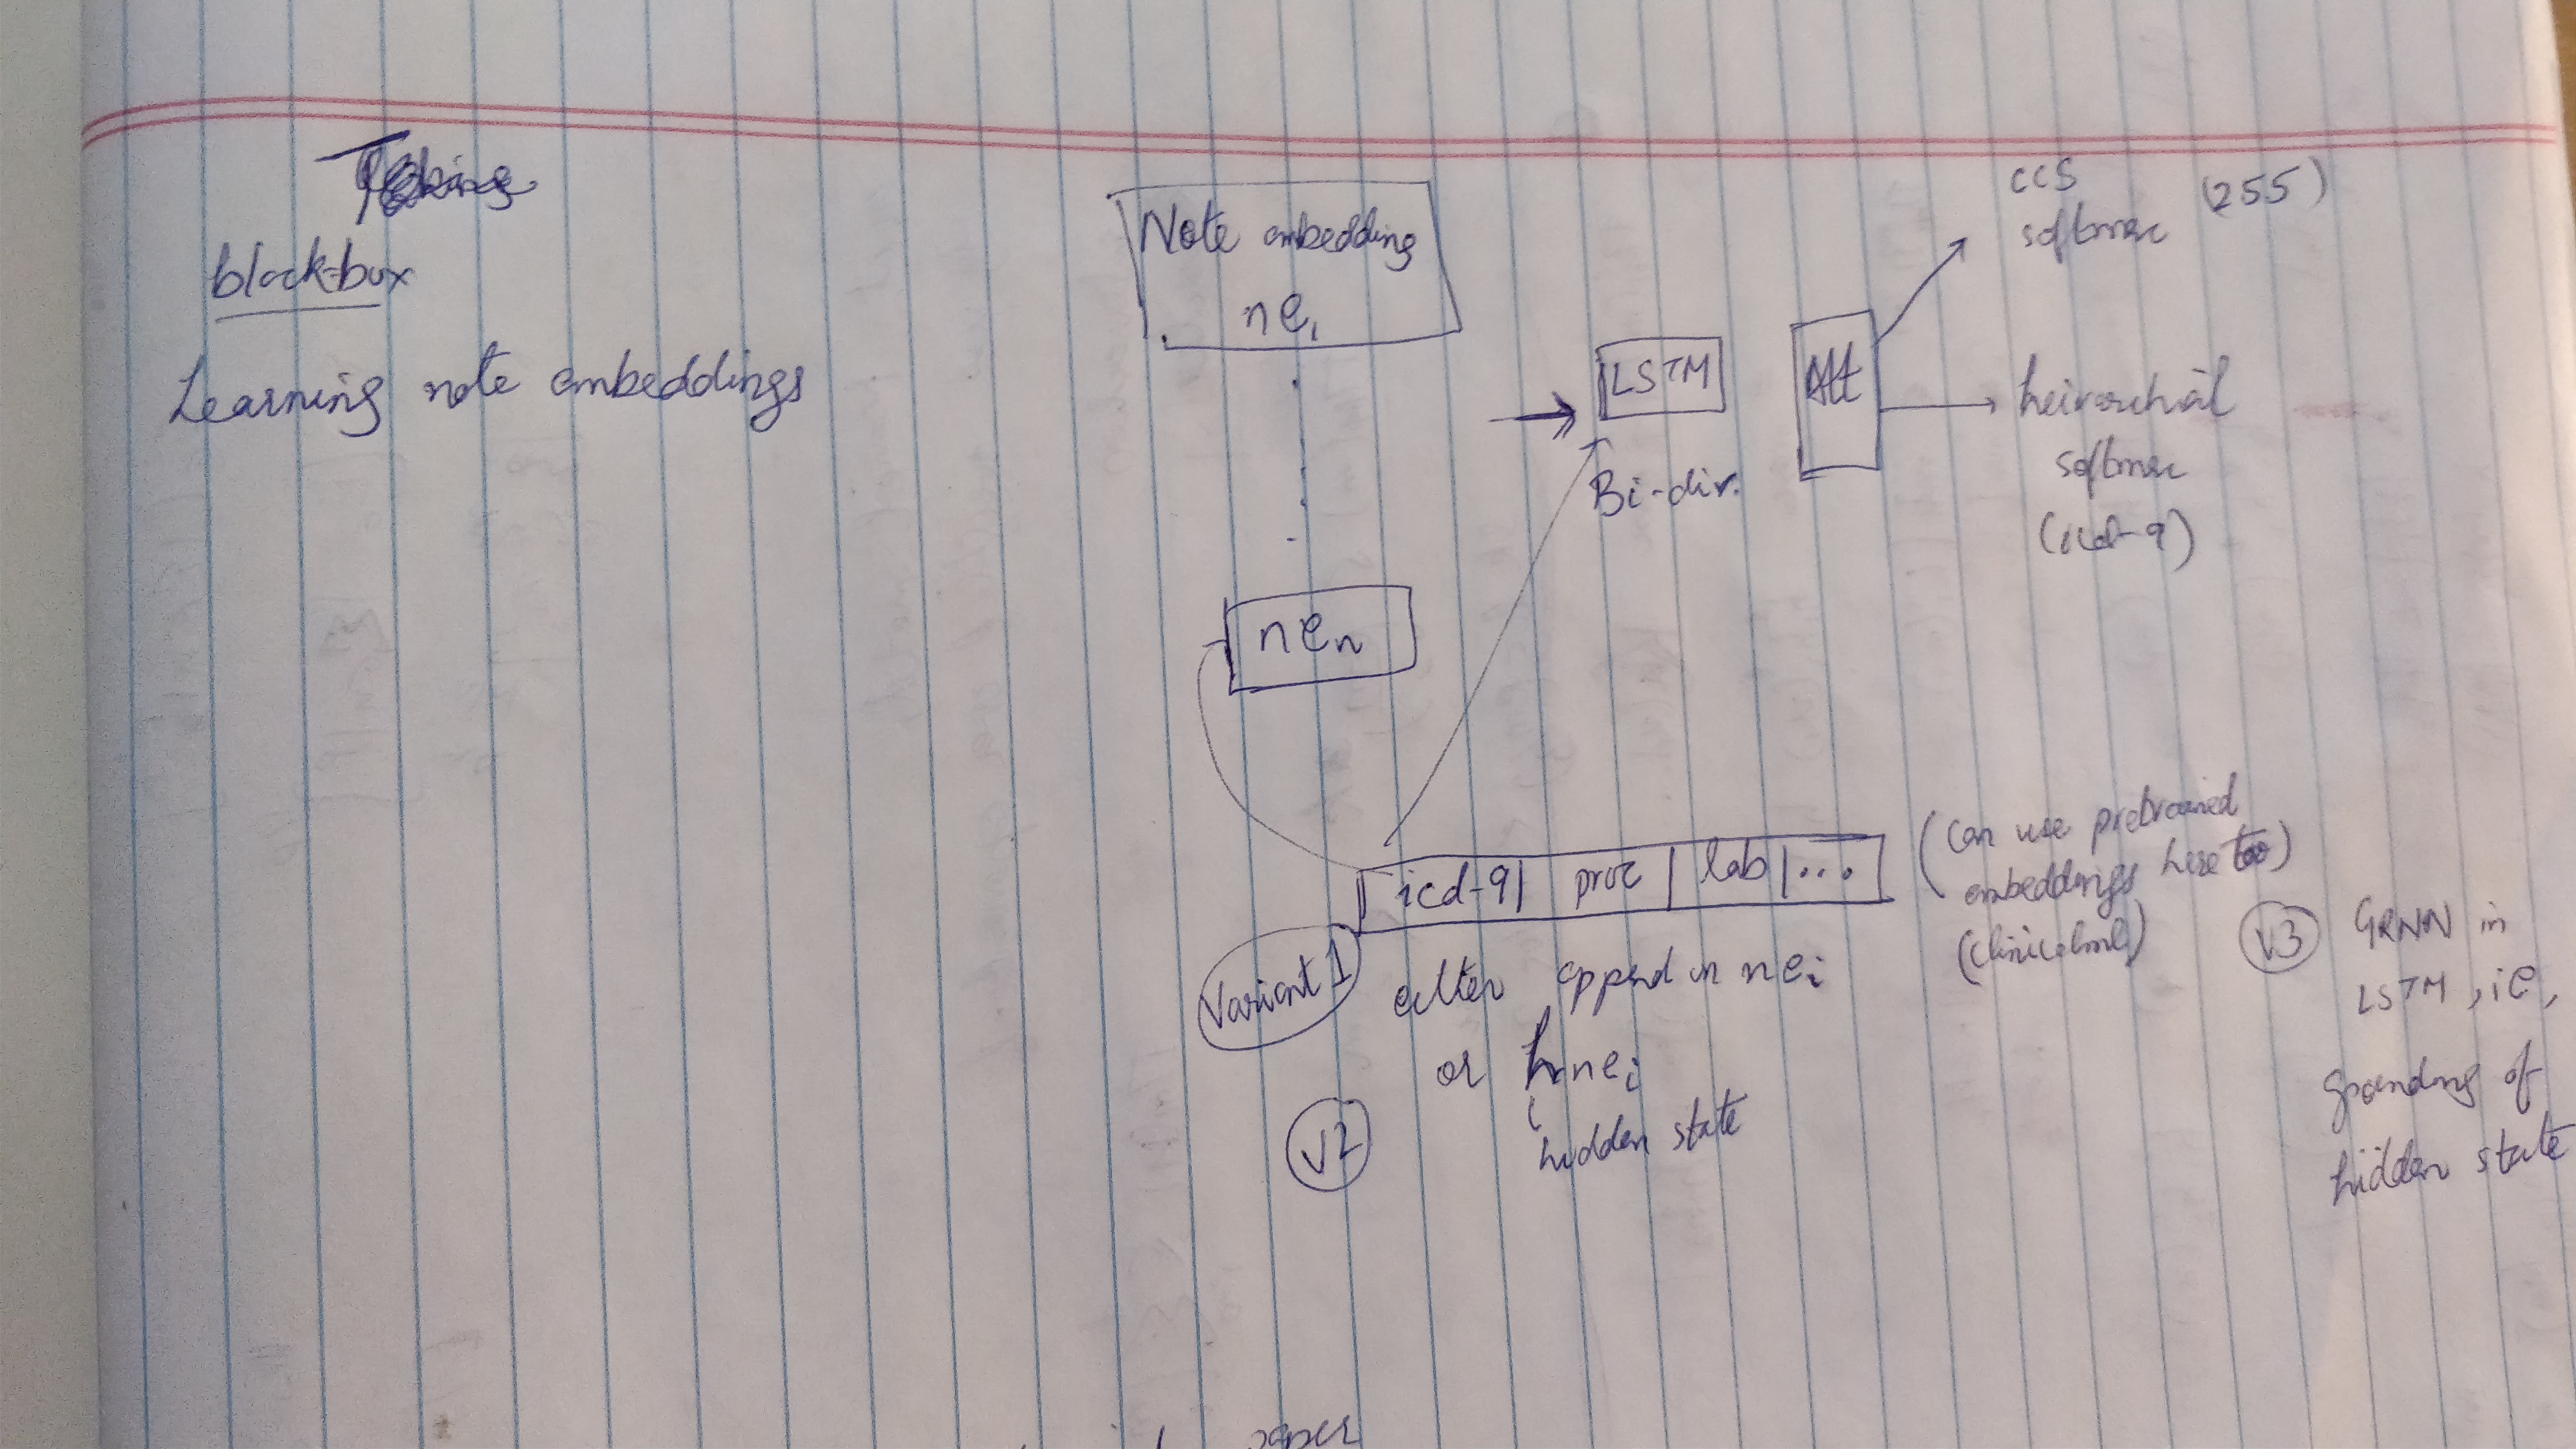 black-box
Learning note embeddings
Note embedding
ne1
nen
LSTM
Bi-dir.
Att
CCS (255)
softmax
heirarchial
softmax
(icd-9)
icd-9 | proc | lab | ...
(can use pretrained
embeddings here too)
(clinicalml)
Variant 1
either append in nei
or hnei
hidden state
V2
V3
GRNN in
LSTM, ie,
grounding of
hidden state
paper